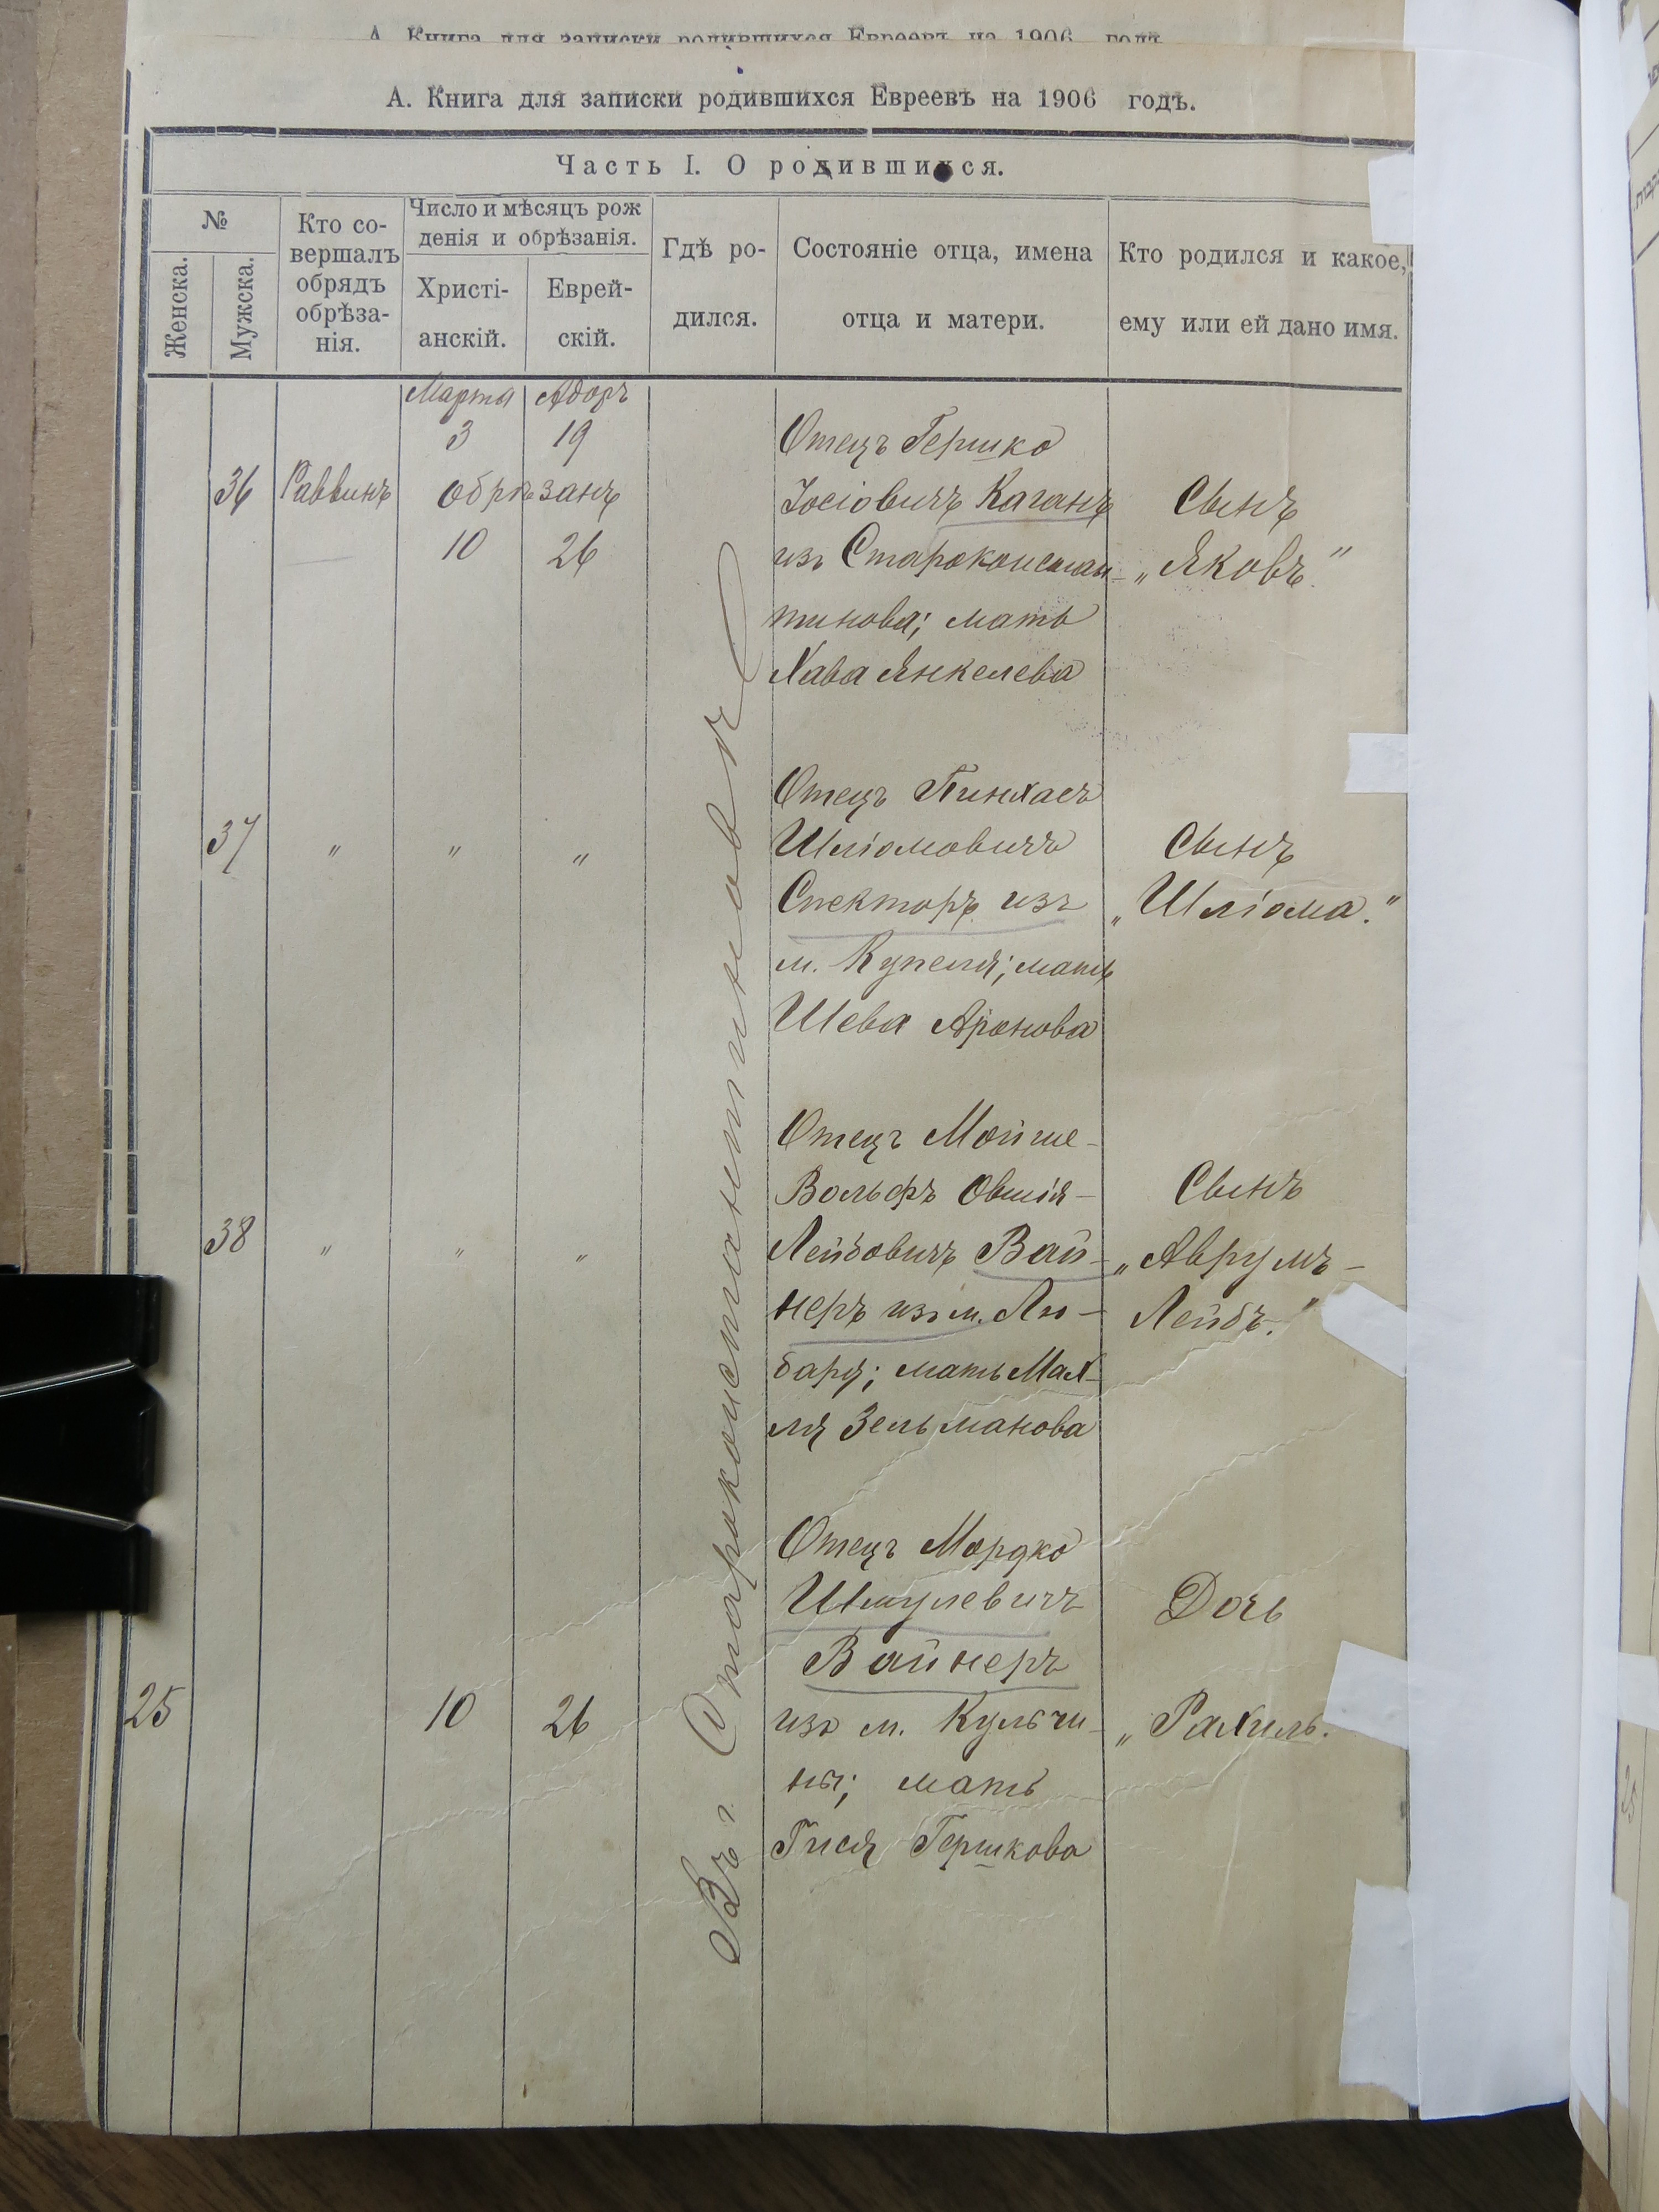 А. Книга для записки родившихся Евреевъ на 1906 годъ.
А. Книга для записки родившихся Евреевъ на 1906 годъ.
Часть I. О родившихся.
№
Женска.
Мужска.
Кто со-
вершалъ
обрядъ
обрѣза-
нія.
Число и мѣсяцъ рож
денія и обрѣзанія.
Христі-
анскій.
Еврей-
скій.
Гдѣ ро-
дился.
Состояніе отца, имена
отца и матери.
Кто родился и какое,
ему или ей дано имя.
Марта Адоръ
3 19
36 Раввинъ обрѣзанъ
10 26
Отецъ Гершко
Іосіовичъ Каганъ
изъ Староконстан-
тинова; мать
Хава Янкелева
Сынъ
„Яковъ."
37 " " "
Отецъ Пинхасъ
Шліомовичъ
Спекторъ изъ
м. Купеля; мать
Шева Аронова
Сынъ
„Шліома."
38 " " "
Отецъ Мойше-
Вольфъ Овшія-
Лейбовичъ Вай-
неръ изъ м. Лю-
бару; мать Мах-
ля Зельманова
Сынъ
„Аврумъ-
Лейбъ."
25 10 26
Отецъ Мордко
Шмулевичъ
Вайнеръ
изъ м. Кульчи-
ны; мать
Гися Гершкова
Дочь
„Рахиль.
Въ г. Староконстантиновѣ
25